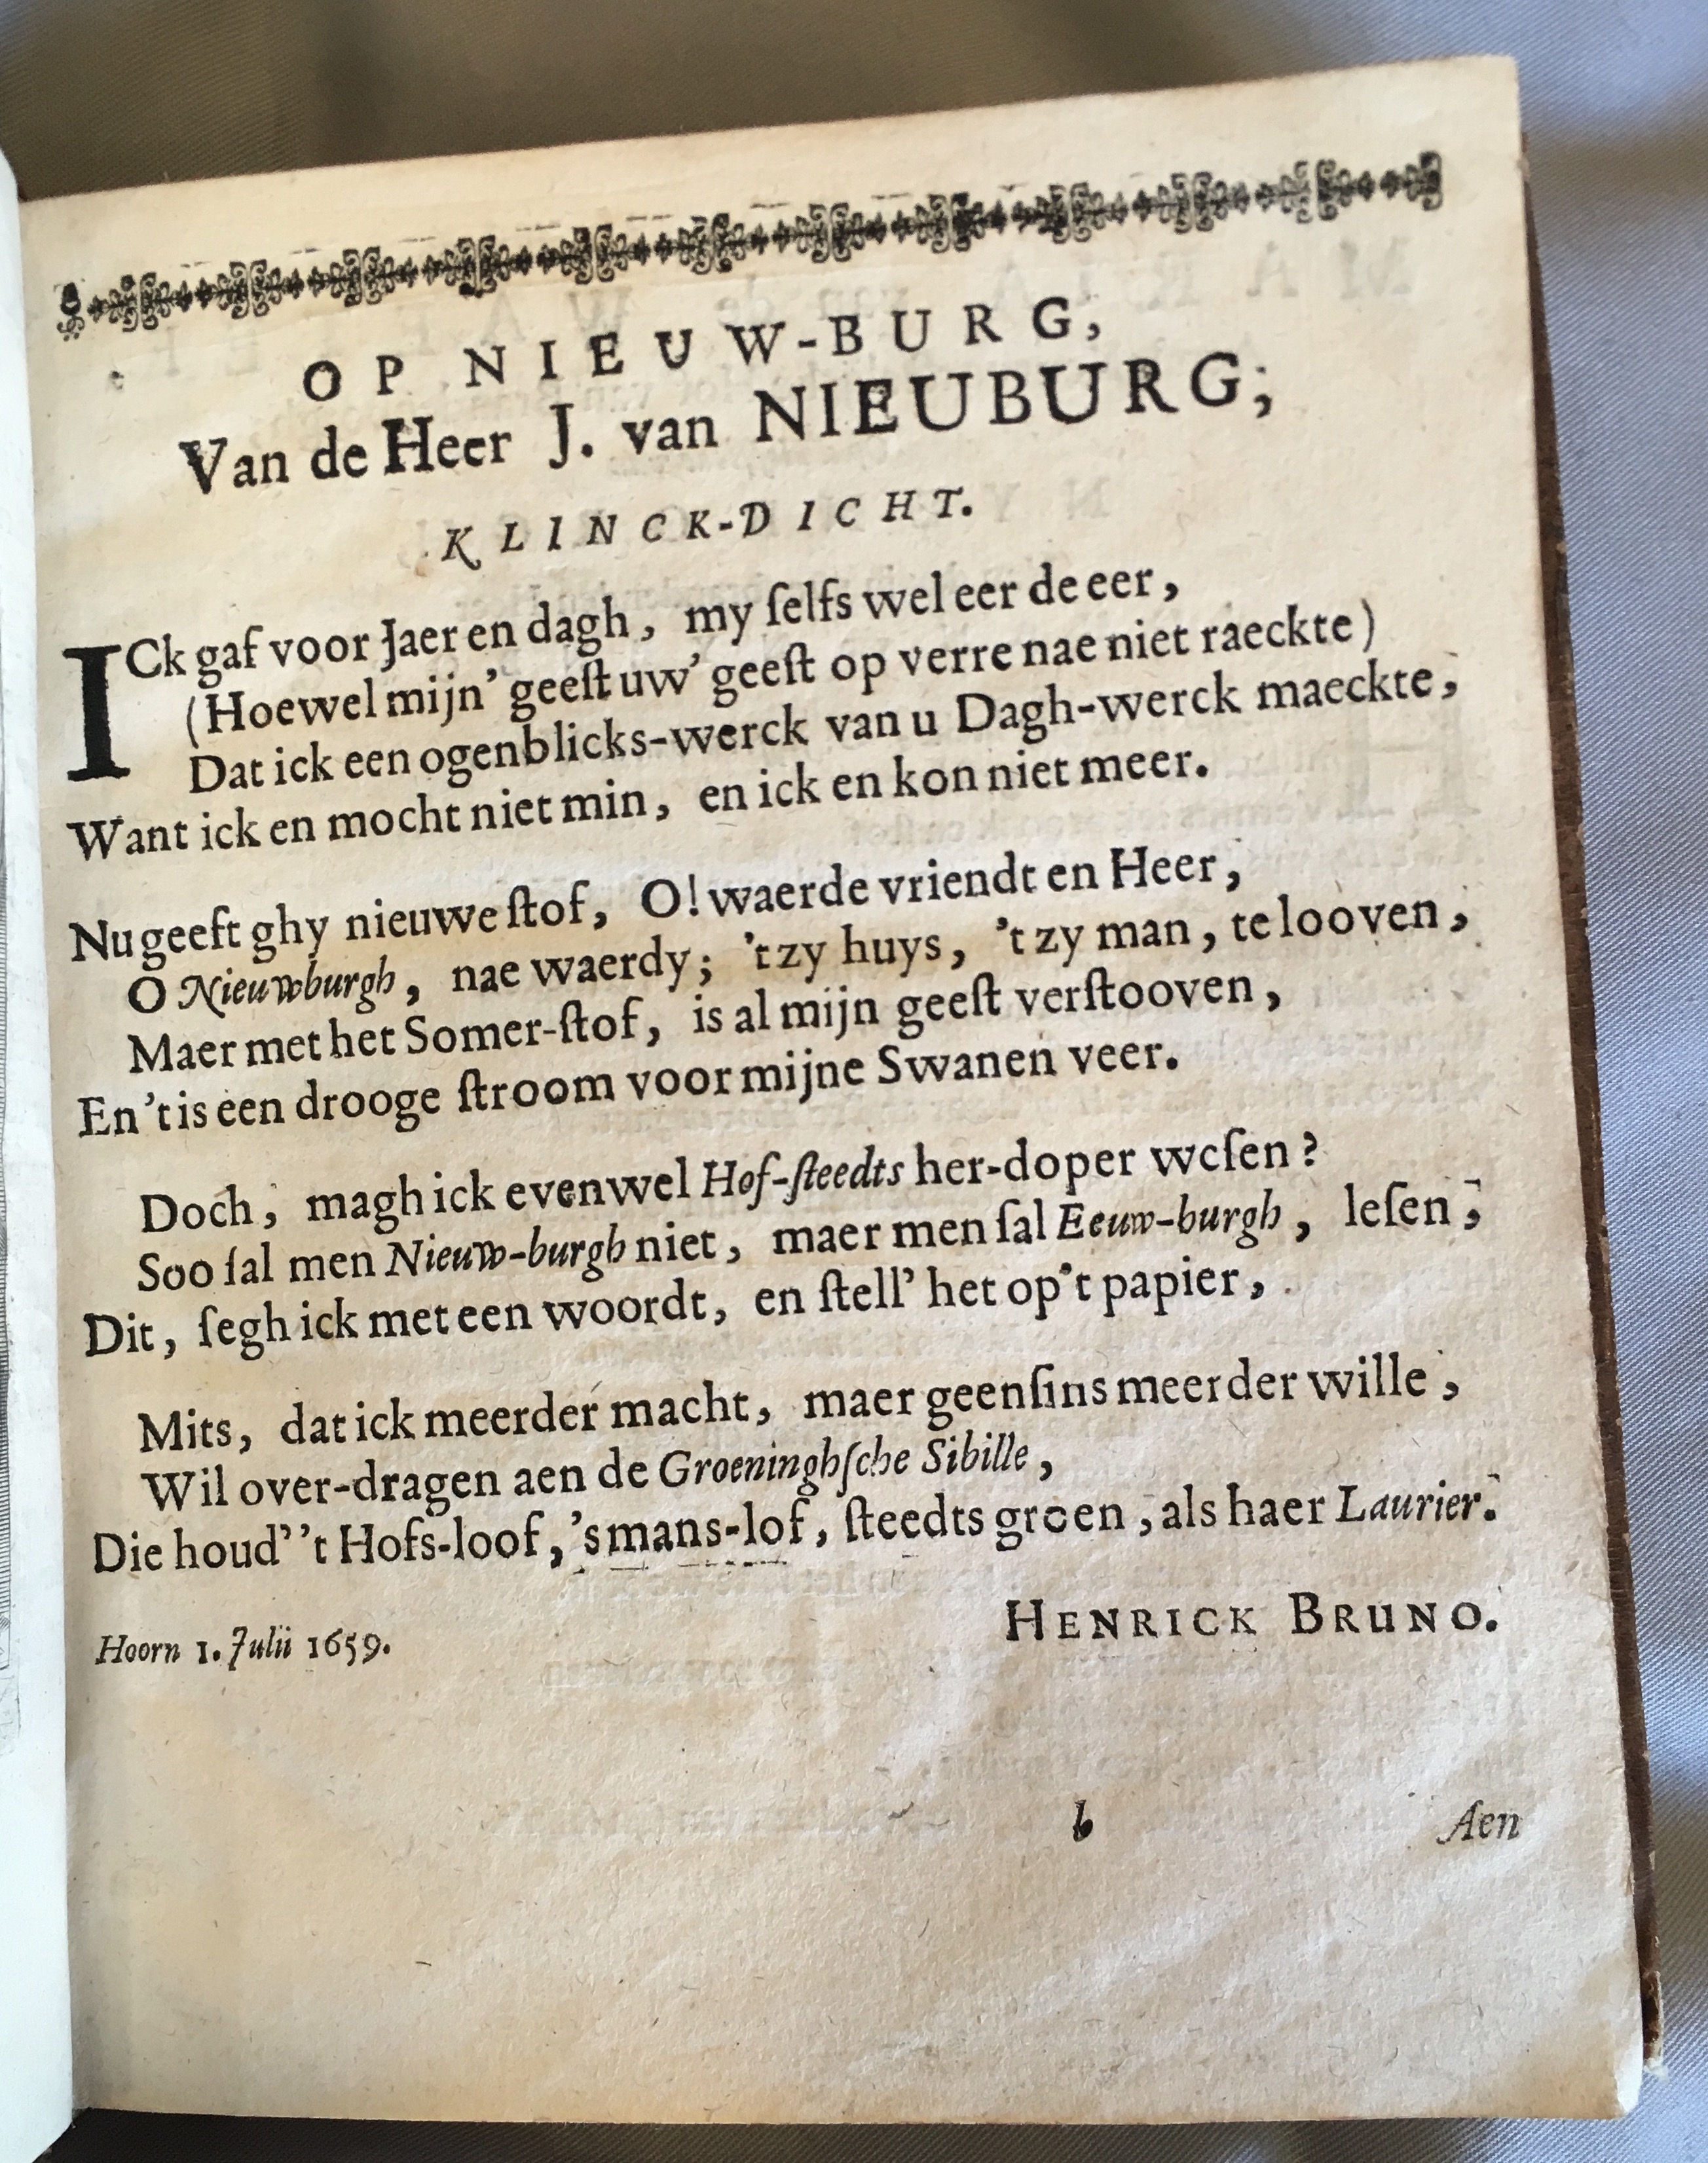 OP NIEUW-BURG,
Van de Heer J. van NIEUBURG;
KLINCK-DICHT.
ICk gaf voor Jaer en dagh, my ſelfs wel eer de eer,
(Hoewel mijn' geeſt uw' geeſt op verre nae niet raeckte)
Dat ick een ogenblicks-werck van u Dagh-werck maeckte,
Want ick en mocht niet min, en ick en kon niet meer.
Nu geeft ghy nieuwe ſtof, O! waerde vriendt en Heer,
O Nieuwburgh, nae waerdy; 't zy huys, 't zy man, te looven,
Maer met het Somer-ſtof, is al mijn geeſt verſtooven,
En 't is een drooge ſtroom voor mijne Swanen veer.
Doch, magh ick evenwel Hof-ſteedts her-doper weſen?
Soo ſal men Nieuw-burgh niet, maer men ſal Eeuw-burgh, leſen,
Dit, ſegh ick met een woordt, en ſtell' het op 't papier,
Mits, dat ick meerder macht, maer geenſins meerder wille,
Wil over-dragen aen de Groeninghſche Sibille,
Die houd' 't Hofs-loof, 's mans-lof, ſteedts groen, als haer Laurier.
HENRICK BRUNO.
Hoorn 1. Julii 1659.
b Aen